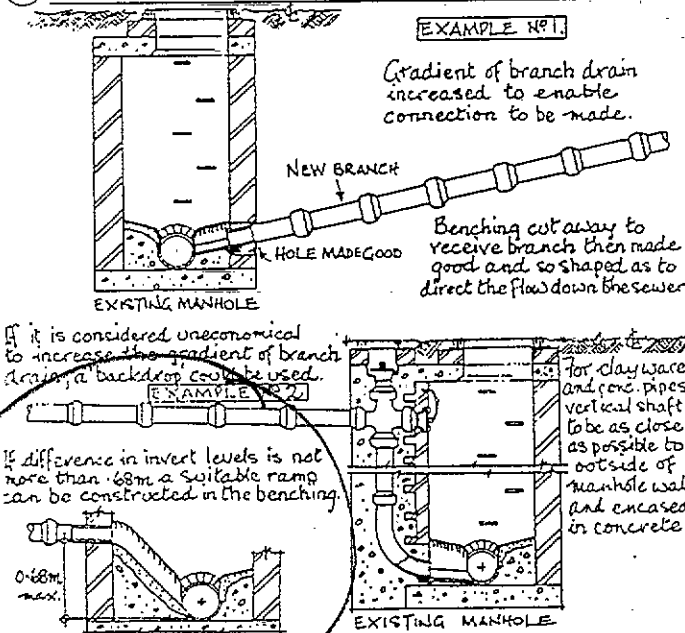 EXAMPLE Nº1.
Gradient of branch drain
increased to enable
connection to be made.
NEW BRANCH
HOLE MADE GOOD
Benching cut away to
receive branch then made
good and so shaped as to
direct the flow down the sewer
EXISTING MANHOLE
If it is considered uneconomical
to increase the gradient of branch
drain, a backdrop could be used.
EXAMPLE Nº2
If difference in invert levels is not
more than .68m a suitable ramp
can be constructed in the benching.
0.68m
max.
For clayware
and conc. pipes
vertical shaft
to be as close
as possible to
outside of
manhole wall
and encased
in concrete
EXISTING MANHOLE